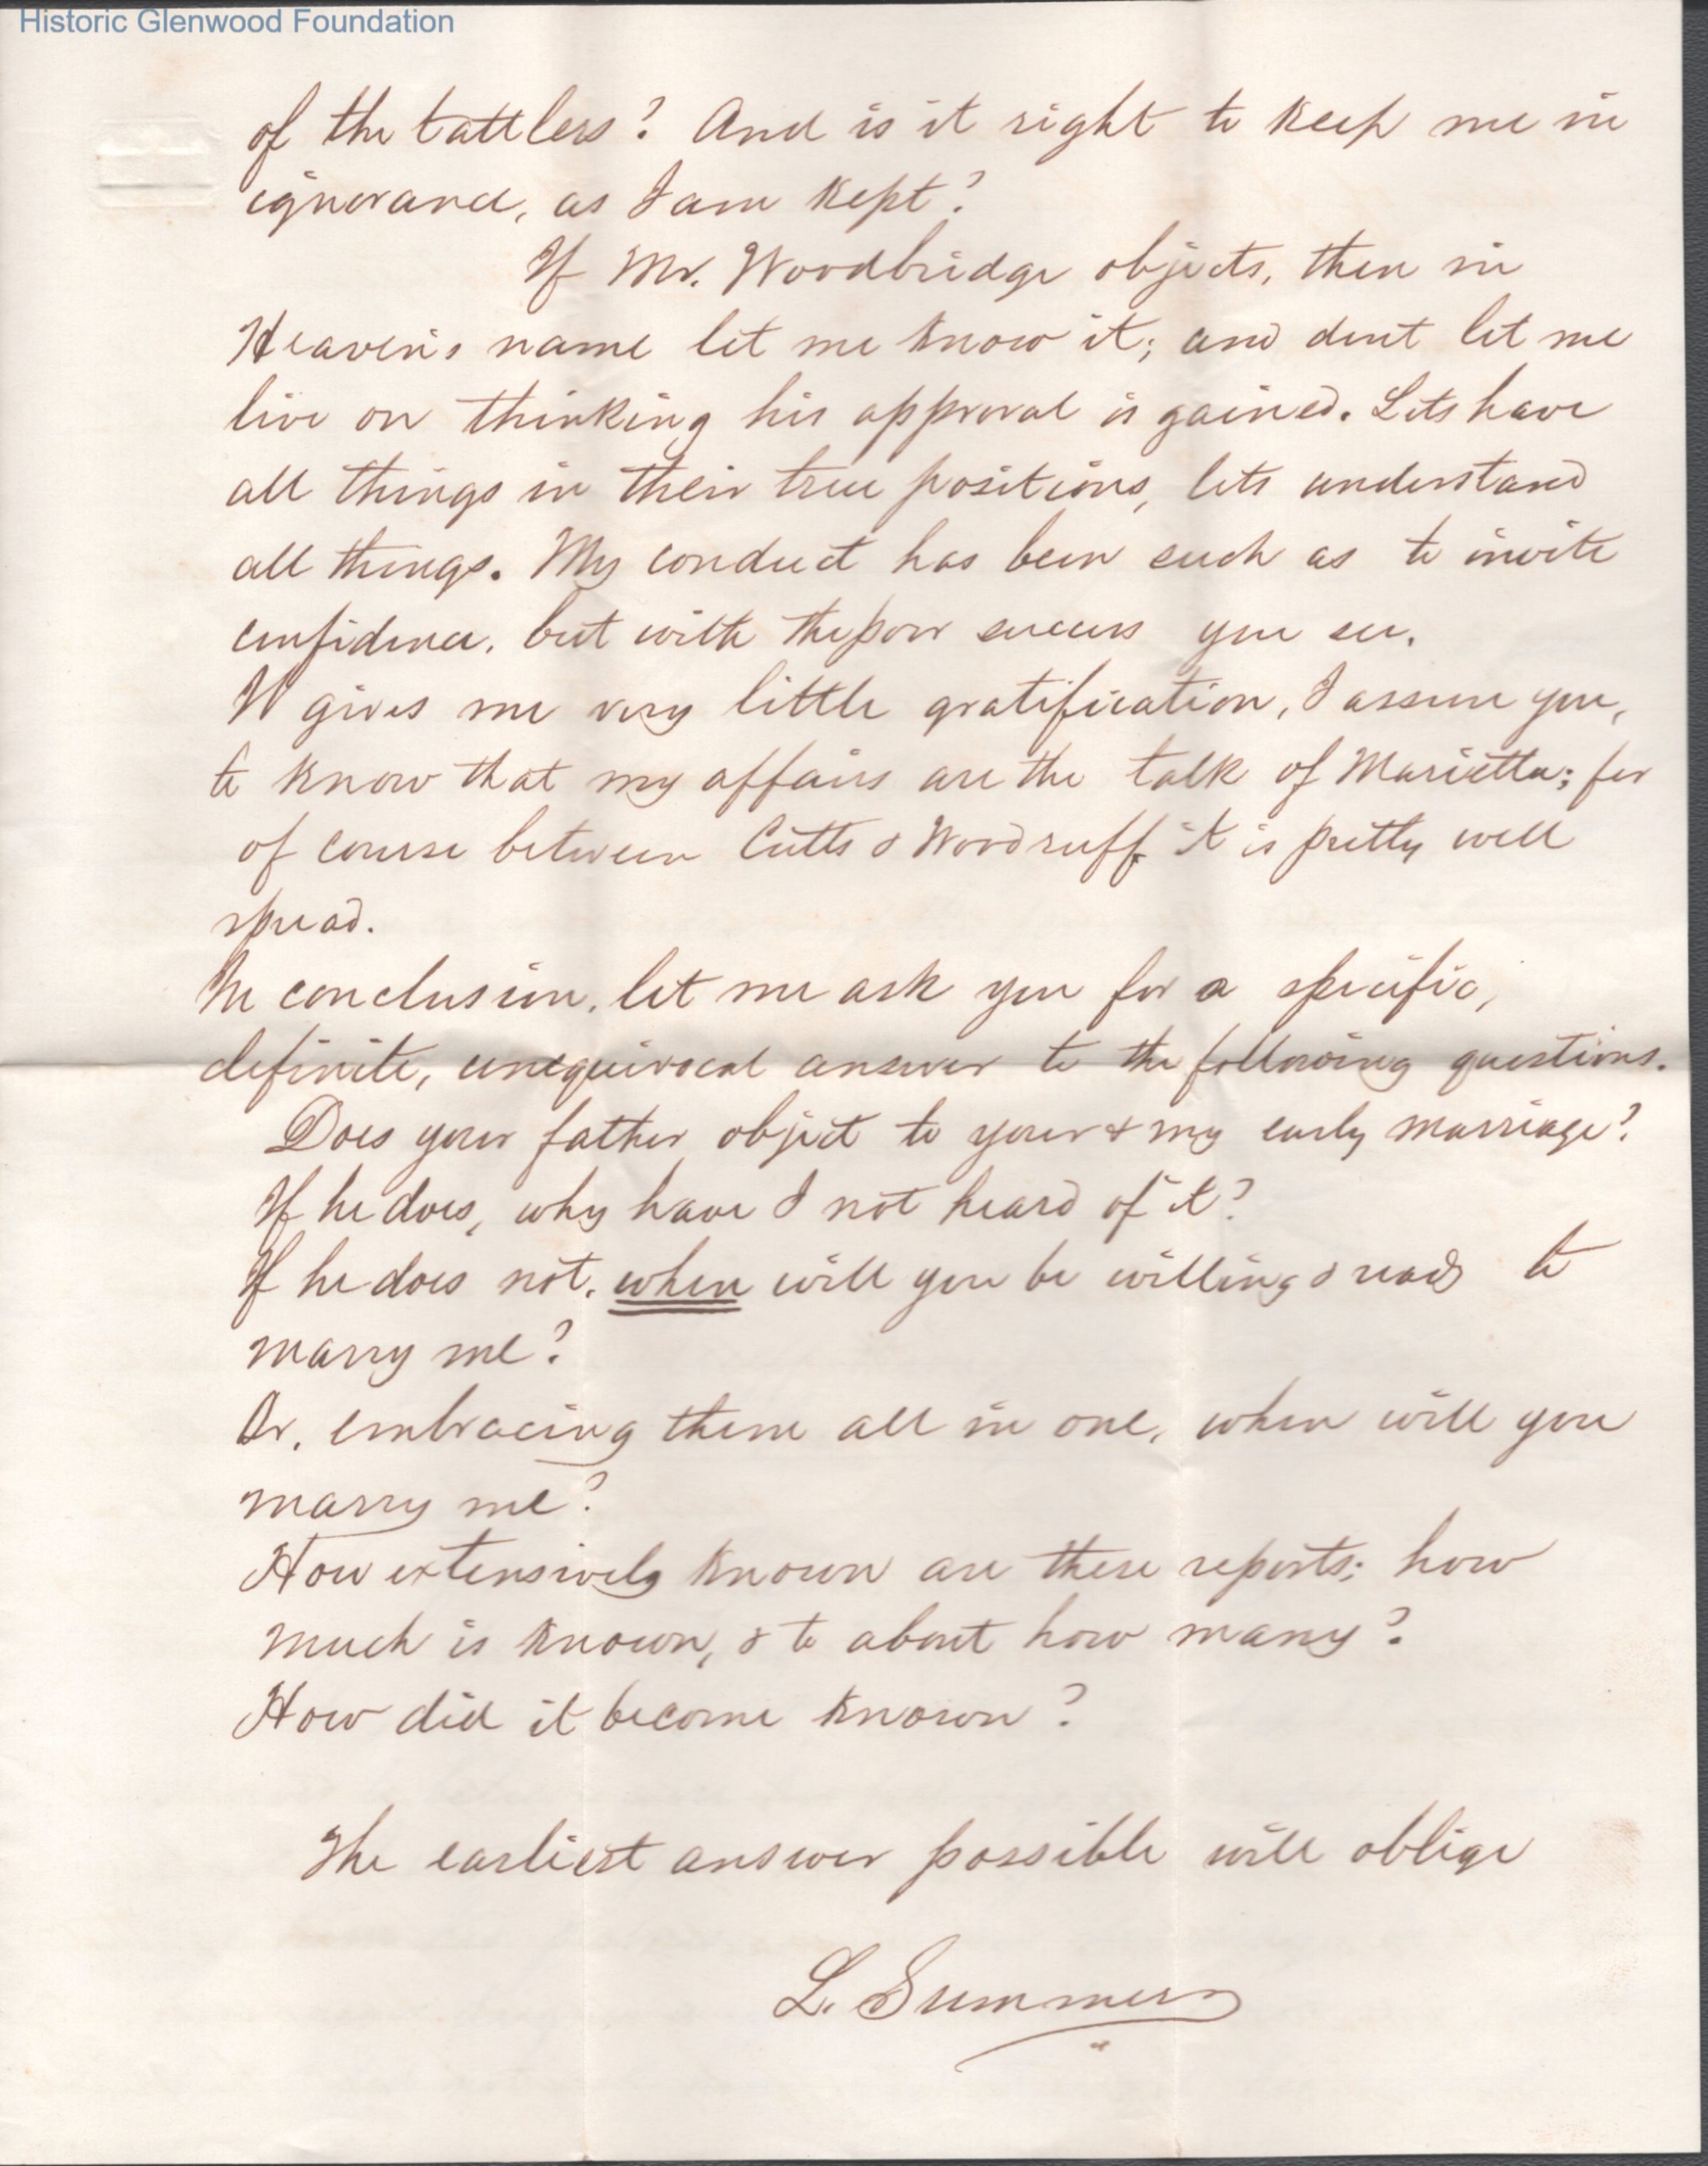 Historic Glenwood Foundation
of the tattlers? And is it right to keep me in
ignorance, as I am kept?
If Mr. Woodbridge objects, then in
Heaven's name let me know it; and dont let me
live on thinking his approval is gained. Lets have
all things in their true positions, lets understand
all things. My conduct has been such as to invite
confidence, but with the poor success you see.
It gives me very little gratification, I assure you,
to know that my affairs are the talk of Marietta; for
of course between Cutts & Woodruff it is pretty well
spread.
In conclusion, let me ask you for a specific,
definite, unequivocal answer to the following questions.
Does your father object to your & my early marriage?
If he does, why have I not heard of it?
If he does not, when will you be willing & ready to
marry me?
Or, embracing them all in one, when will you
marry me?
How extensively known are these reports; how
much is known, & to about how many?
How did it become known?
The earliest answer possible will oblige
L. Summers